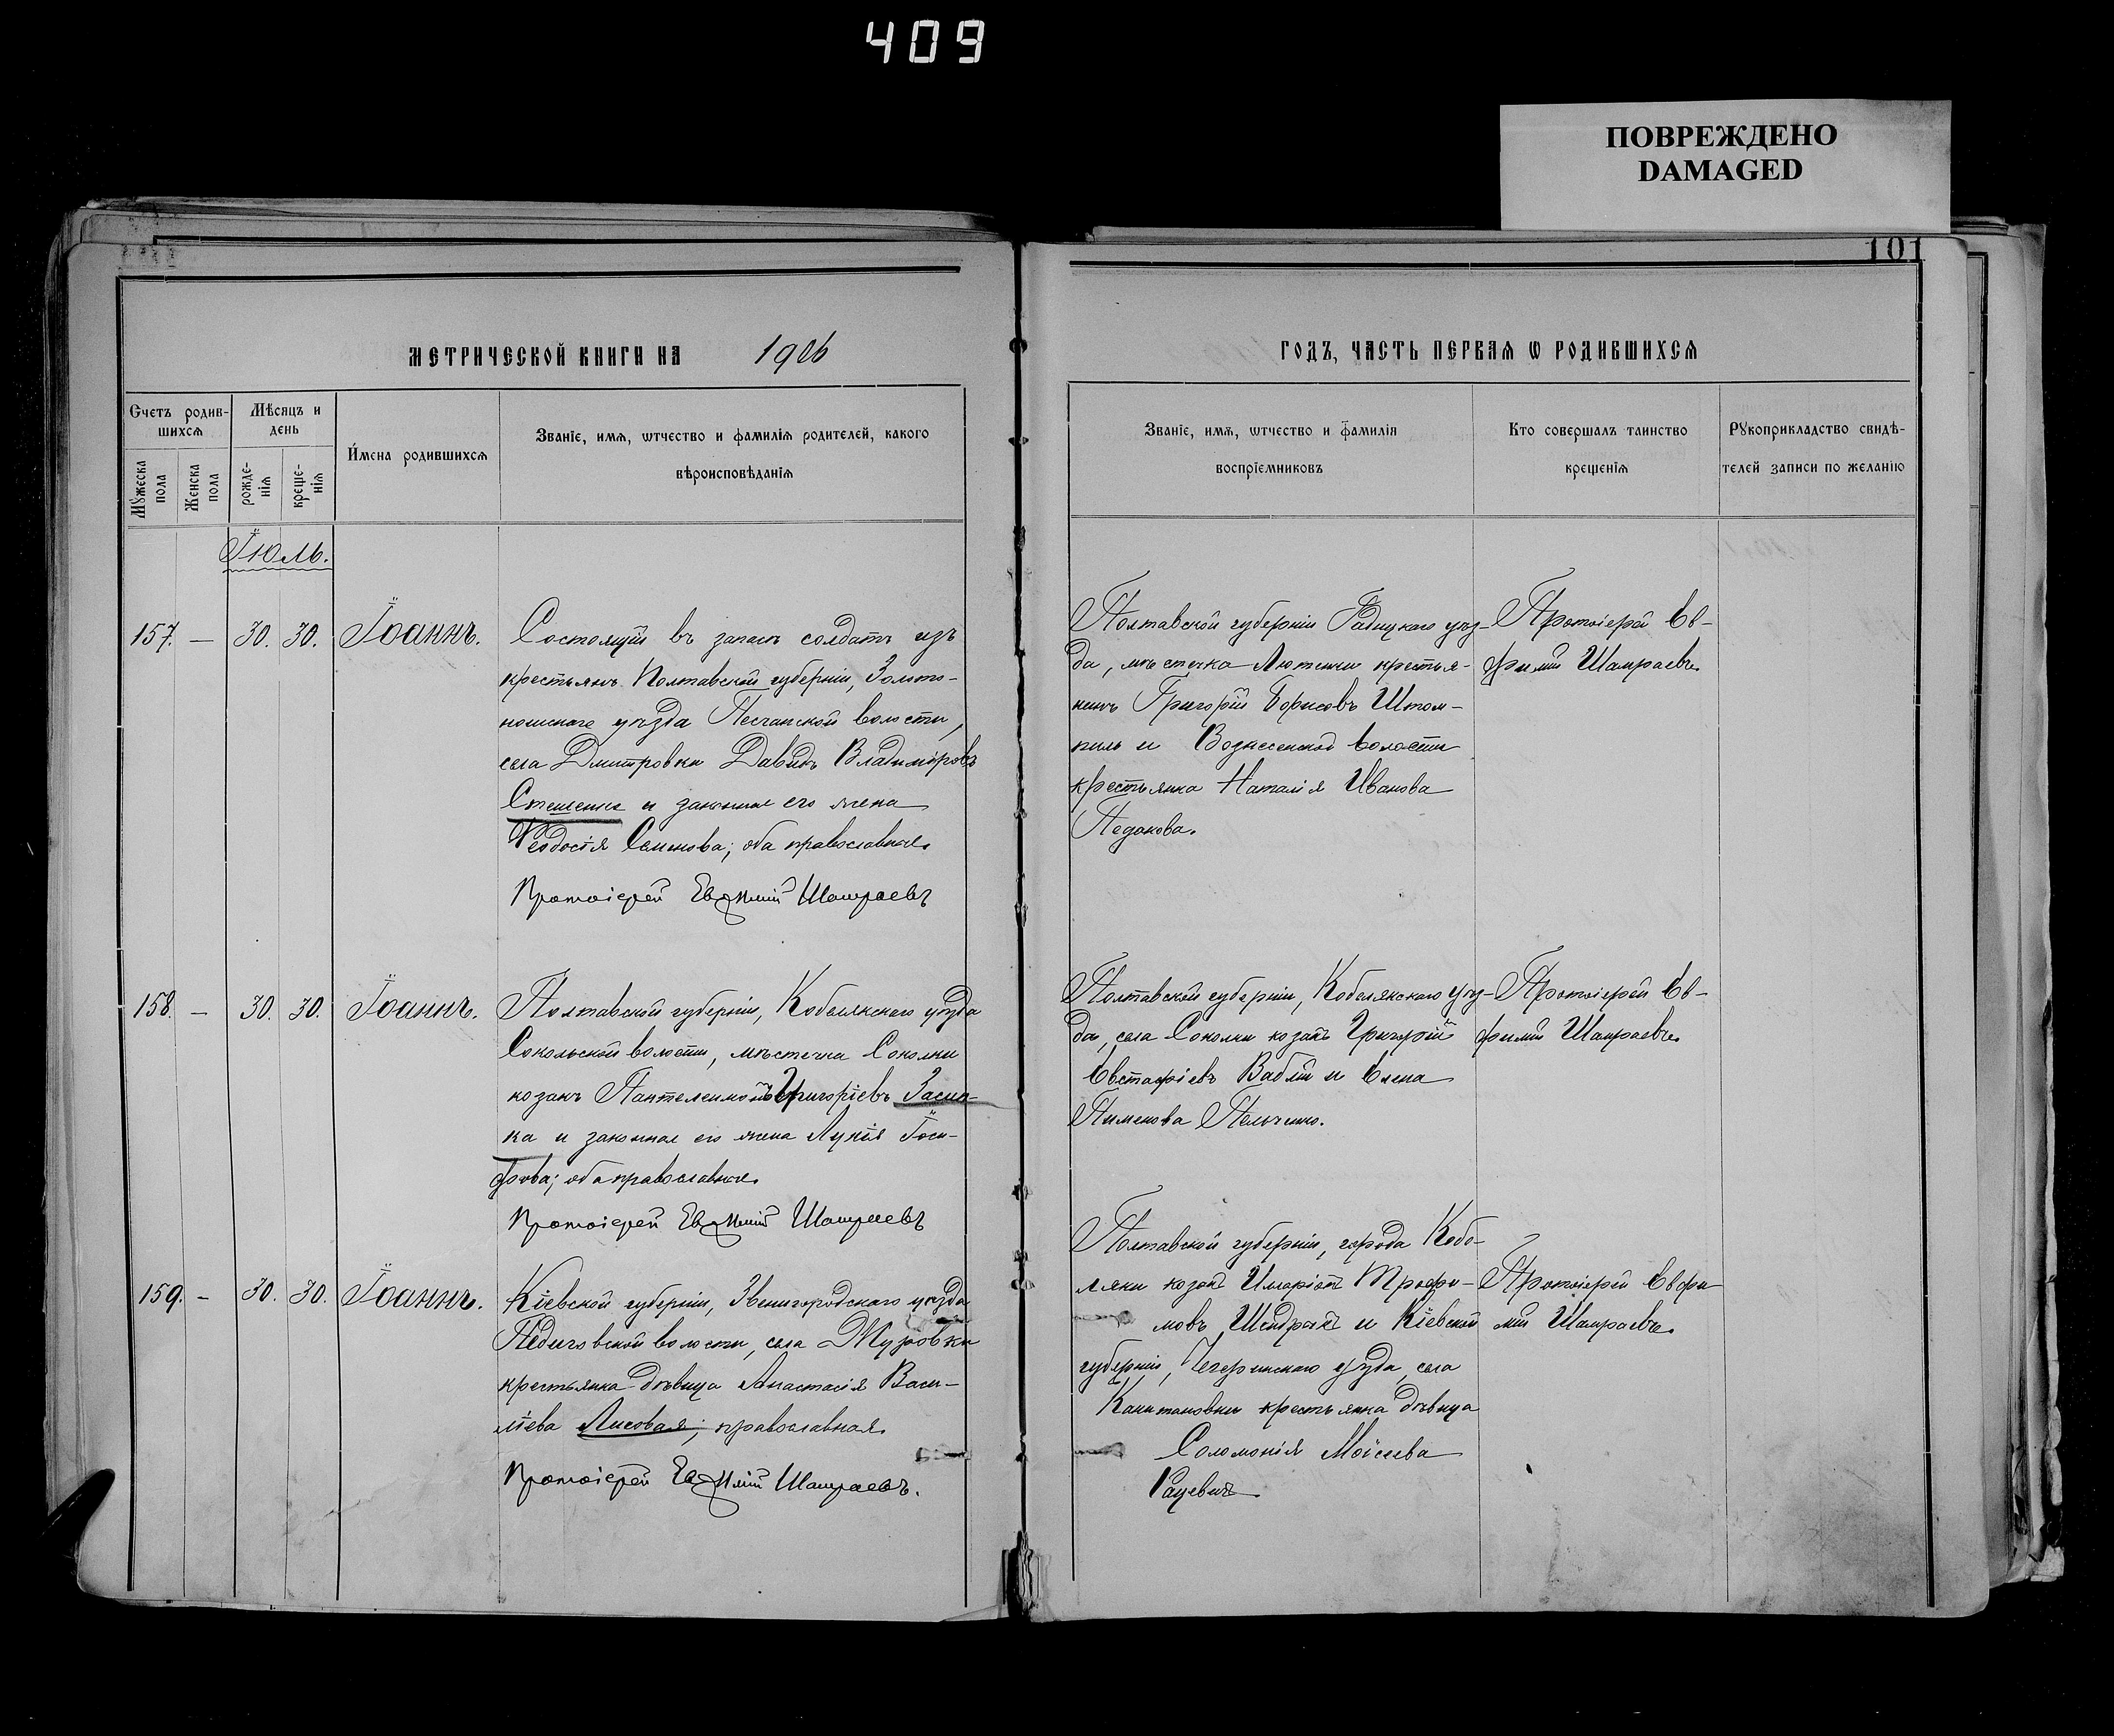 409
ПОВРЕЖДЕНО
DAMAGED
101
МЕТРИЧЕСКОЙ КНИГИ НА 1906
ГОДЪ, ЧАСТЬ ПЕРВАЯ Ѡ РОДИВШИХСЯ
Счетъ родив-
шихся
Мѣсяцъ и
день
Мужеска
пола
Женска
пола
рожде-
нія
креще-
нія
Имена родившихся
Званіе, имя, ѡтчество и фамилія родителей, какого
вѣроисповѣданія
Званіе, имя, ѡтчество и фамилія
воспріемниковъ
Кто совершалъ таинство
крещенія
Рукоприкладство свидѣ-
телей записи по желанію
Іюль.
157. — 30. 30. Іоаннъ.
Состоящій въ запасѣ солдатъ изъ
крестьянъ Полтавской губерніи, Золото-
ношскаго уѣзда Песчанской волости,
села Дмитровки Давидъ Владиміровъ
Стешенко и законная его жена
Ѳеодосія Семенова; оба православные.
Протоіерей Евѳимій Шамраевъ
Полтавской губерніи Гадяцкаго уѣз-
да, мѣстечка Лютеньки крестья-
нинъ Григорій Борисовъ Штом-
пиль и Вознесенской волости
крестьянка Наталія Иванова
Педакова.
Протоіерей Ев-
фимій Шамраевъ.
158. — 30. 30. Іоаннъ.
Полтавской губерніи, Кобелякскаго уѣзда
Сокольской волости, мѣстечка Соколки
козакъ Пантелеимонъ Григоріевъ Засип-
ка и законная его жена Лукія Іоси-
фова; оба православные.
Протоіерей Евѳимій Шамраевъ
Полтавской губерніи, Кобелякскаго уѣз-
да, села Соколки козакъ Григорій
Евстафіевъ Вабій и Елена
Пименова Пельченко.
Протоіерей Ев-
фимій Шамраевъ.
159. — 30. 30. Іоаннъ.
Кіевской губерніи, Звенигородскаго уѣзда
волости, села Журовки
крестьянка дѣвица Анастасія Васи-
ліева Лисовая; православная.
Протоіерей Евѳимій Шамраевъ.
Полтавской губерніи, города Кобе-
ляки козакъ Иларіонъ Трофи-
мовъ Шендрикъ и Кіевской
губерніи, Чегеринскаго уѣзда, села
Капитановки крестьянка дѣвица
Соломонія Моісеева
Рацевичъ.
Протоіерей Евфи
мій Шамраевъ.